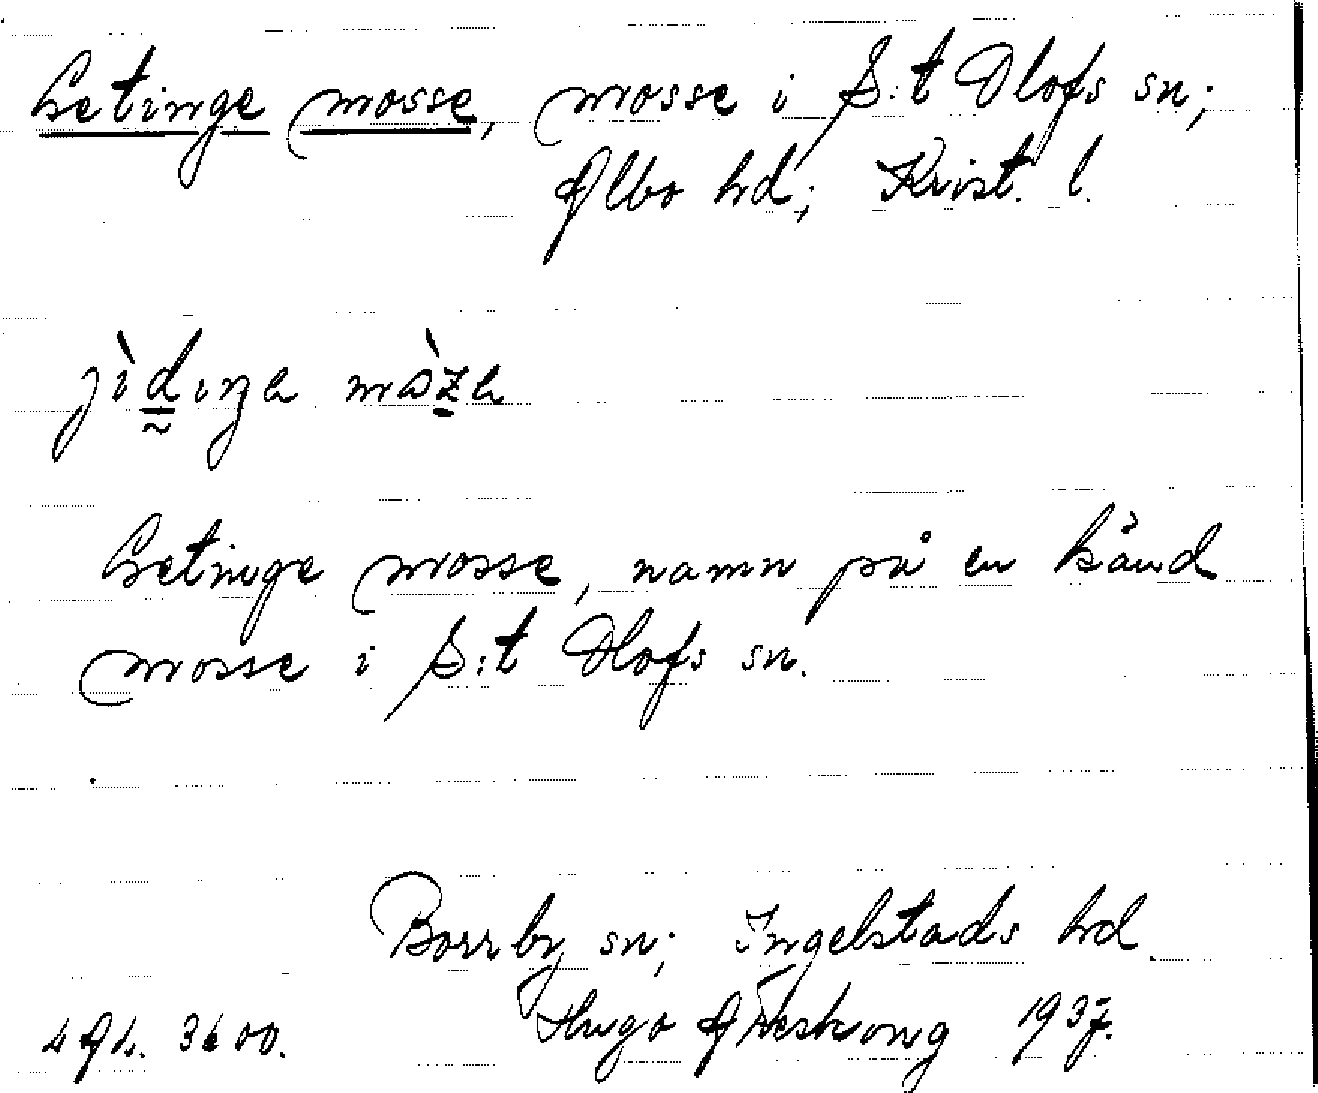 Getinge mosse, mosse i S:t Olofs sn;
Albo hd; Krist. l.
jìdiŋa màza
Getinge mosse, namn på en känd
mosse i S:t Olofs sn.
Borrby sn; Ingelstads hd.
Hugo Areskoug 1937.